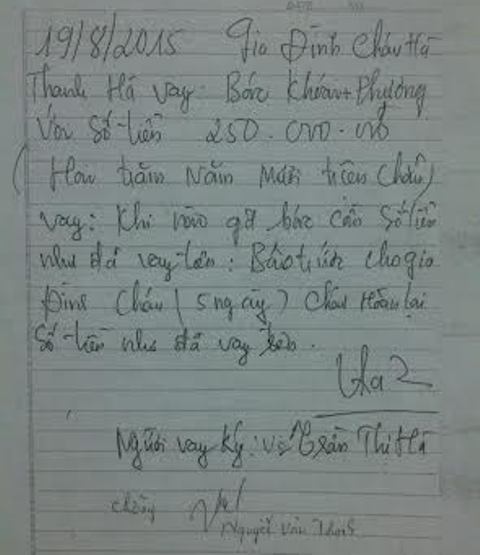 19/8/2015 Gia Đình Cháu Hà
Thanh Hà vay: Bác Khoán + Phượng
Với Số tiền 250.000.000
(Hai trăm Năm Mươi triệu Chẵn)
vay: Khi nào gđ bác cần Số tiền
như đã vay trên: Báo trước cho gia
Đình Cháu (5 ngày) Cháu Hoàn lại
Số tiền như đã vay trên.
Người vay Ký: vợ Trần Thị Hà
chồng
Nguyễn Văn